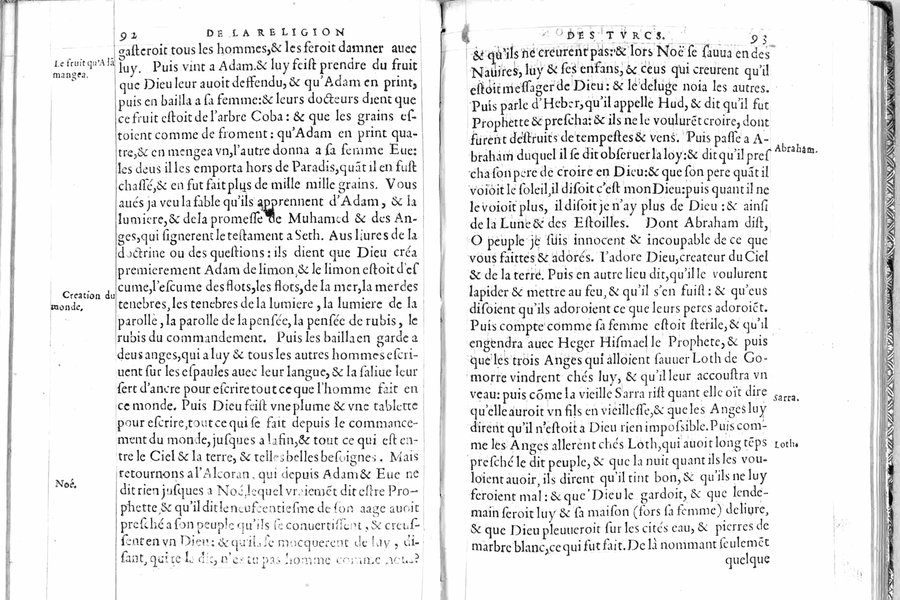 92 DE LA RELIGION
gasteroit tous les hommes,& les feroit damner auec
Le fruit qu'A
mangea.
luy. Puis vint a Adam.& luy feist prendre du fruit
que Dieu leur auoit deffendu, & qu'Adam en print,
puis en bailla a sa femme:& leurs docteurs dient que
ce fruit estoit de l'arbre Coba : & que les grains es-
toient comme de froment : qu'Adam en print qua-
tre,& en mengea vn,l'autre donna a sa femme Eue:
les deus il les emporta hors de Paradis,quãt il en fust
chassé,& en fut fait plus de mille mille grains. Vous
aués ja veu la fable qu'ils apprennent d'Adam, & la
lumiere,& de la promesse de Muhamed & des An-
ges,qui signerent le testament a Seth. Aus liures de la
doctrine ou des questions: ils dient que Dieu créa
premierement Adam de limon,& le limon estoit d'es
Creation du
monde.
cume,l'escume des flots,les flots,de la mer,la mer des
tenebres,les tenebres de la lumiere , la lumiere de la
parolle , la parolle de la pensée, la pensée de rubis , le
rubis du commandement. Puis les bailla en garde a
deus anges,qui a luy & tous les autres hommes escri-
uent sur les espaules auec leur langue, & la saliue leur
sert d'ancre pour escrire tout ce que l'homme fait en
ce monde. Puis Dieu feist vne plume & vne tablette
pour escrire,tout ce qui se fait depuis le commance-
ment du monde, jusques a la fin,& tout ce qui est en-
tre le Ciel & la terre, & telles belles besoignes. Mais
retournons a l'Alcoran, qui depuis Adam & Eue ne
Noé.
dit rien jusques a Noé,lequel vraiemẽt dit estre Pro-
phette,& qu'il dit le neuf centiesme de son aage auoit
presché a son peuple qu'ils se conuertissent , & creus-
sent en vn Dieu: & qu'ils se mocquerent de luy , di-
sant, qui te le dit, n'es tu pas homme comme nous?
DES TVRCS. 93
& qu'ils ne creurent pas:& lors Noë se sauua en des
Nauires, luy & ses enfans, & ceus qui creurent qu'il
estoit messager de Dieu: & le deluge noia les autres.
Puis parle d'Heber, qu'il appelle Hud, & dit qu'il fut
Prophette & prescha: & ils ne le voulurẽt croire, dont
furent destruits de tempestes & vens. Puis passe a A-
Abraham.
braham duquel il se dit obseruer la loy:& dit qu'il pres
cha son pere de croire en Dieu:& que son pere quãt il
voioit le soleil,il disoit c'est mon Dieu:puis quant il ne
le voioit plus, il disoit je n'ay plus de Dieu : & ainsi
de la Lune & des Estoilles. Dont Abraham dist,
O peuple je suis innocent & incoupable de ce que
vous faittes & adorés. I'adore Dieu,createur du Ciel
& de la terre. Puis en autre lieu dit,qu'il le voulurent
lapider & mettre au feu, & qu'il s'en fuist : & qu'eus
disoient qu'ils adoroient ce que leurs peres adoroiẽt.
Puis compte comme sa femme estoit sterile,& qu'il
engendra auec Heger Hismael le Prophete, & puis
que les trois Anges qui alloient sauuer Loth de Go-
morre vindrent chés luy, & qu'il leur accoustra vn
Sarra.
veau: puis cõme la vieille Sarra rist quant elle oït dire
qu'elle auroit vn fils en vieillesse,& que les Anges luy
dirent qu'il n'estoit a Dieu rien impossible.Puis com-
Loth.
me les Anges allerent chés Loth,qui auoit long tẽps
presché le dit peuple, & que la nuit quant ils les vou-
loient auoir, ils dirent qu'il tint bon, & qu'ils ne luy
feroient mal : & que Dieu le gardoit, & que lende-
main seroit luy & sa maison (fors sa femme) deliure,
& que Dieu pleuueroit sur les cités eau, & pierres de
marbre blanc,ce qui fut fait. De là nommant seulemẽt
quelque